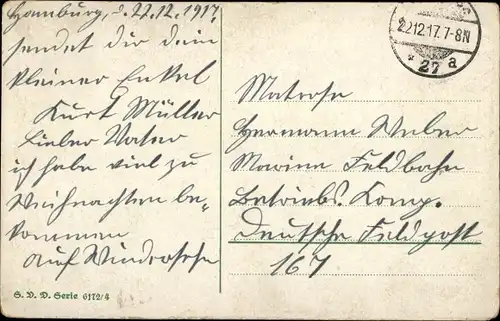 Hamburg, d. 22.12.1917.
sendet dir dein
kleiner Enkel
Kurt Müller
Lieber Vater
ich habe viel zu
Weihnachten be-
kommen
Auf Wiedersehn
S. V. D. Serie 6172/4
22.12.17. 7-8N
* 27 a
Matrose
Hermann Weber
Marine Feldbahn
Betriebs. Komp.
Deutsche Feldpost
167